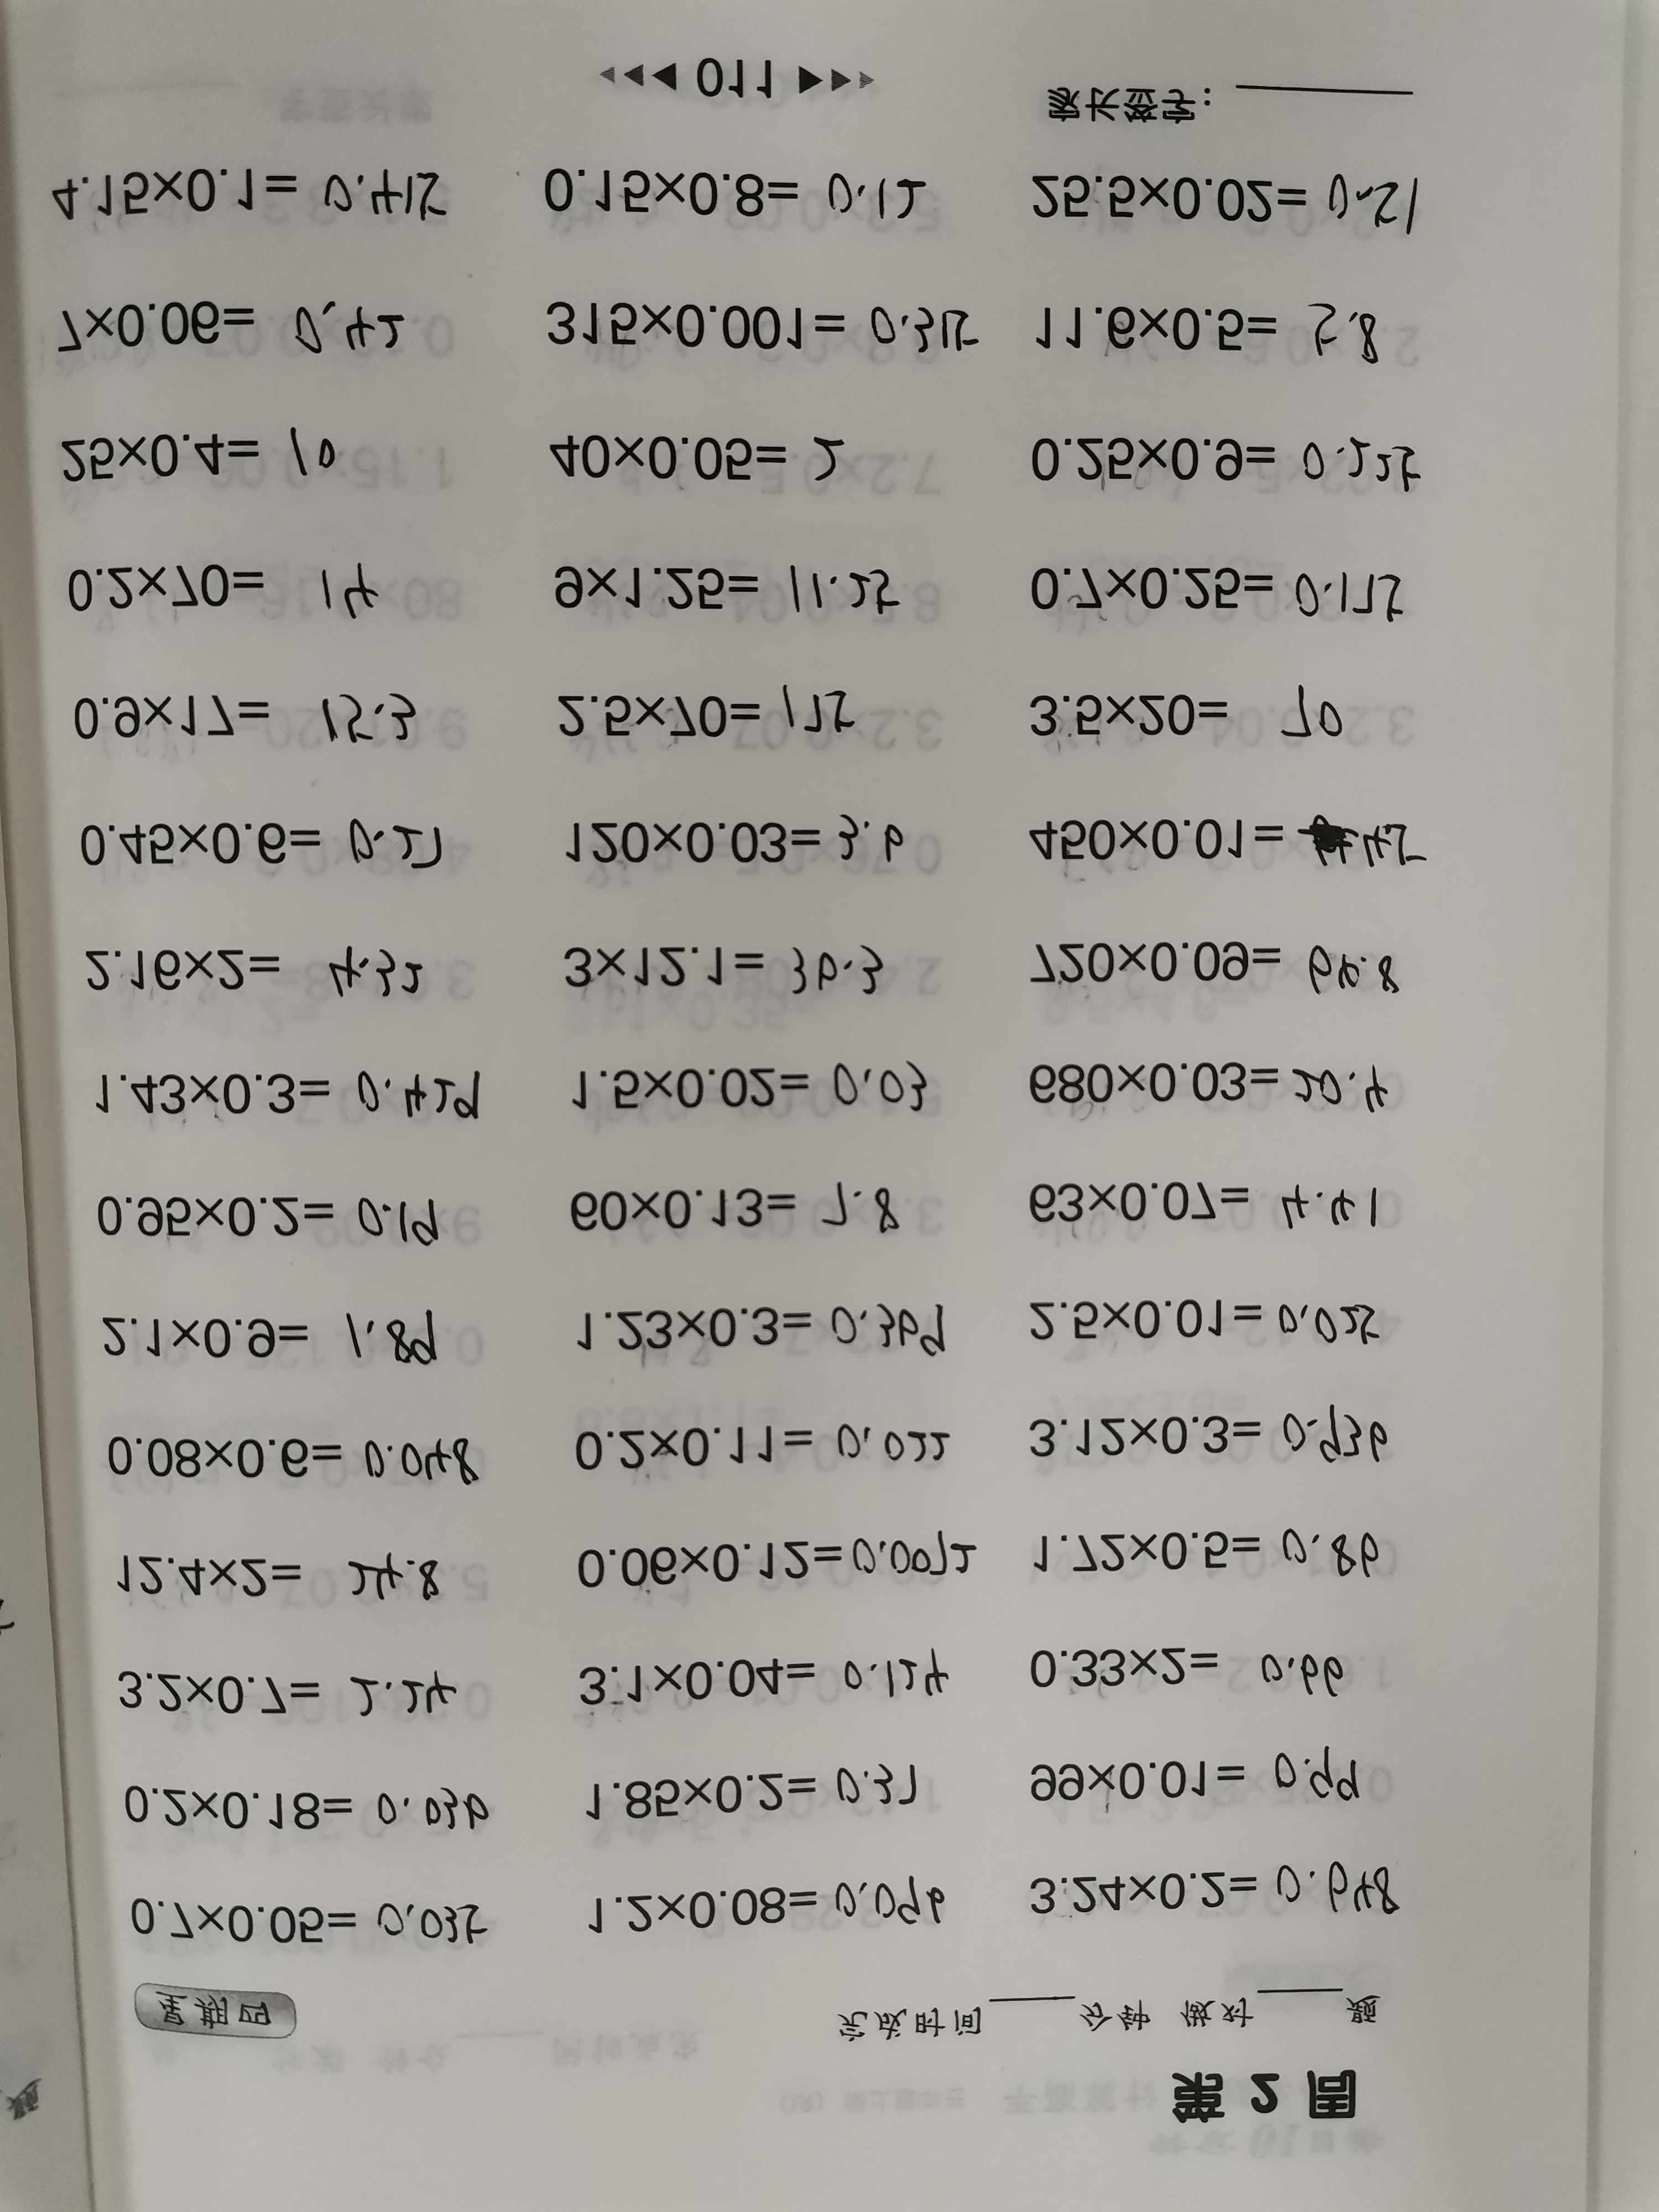 第2周
星期四 完成时间____分钟 做对____题
0.7×0.05= 0.035 1.2×0.08= 0.096 3.24×0.2= 0.648
0.2×0.18= 0.036 1.85×0.2= 0.37 99×0.01= 0.99
3.2×0.7= 2.24 3.1×0.04= 0.124 0.33×2= 0.66
12.4×2= 24.8 0.06×0.12= 0.0072 1.72×0.5= 0.86
0.08×0.6= 0.048 0.2×0.11= 0.022 3.12×0.3= 0.936
2.1×0.9= 1.89 1.23×0.3= 0.369 2.5×0.01= 0.025
0.95×0.2= 0.19 60×0.13= 7.8 63×0.07= 4.41
1.43×0.3= 0.429 1.5×0.02= 0.03 680×0.03= 20.4
2.16×2= 4.32 3×12.1= 36.3 720×0.09= 64.8
0.45×0.6= 0.27 120×0.03= 3.6 450×0.01= 4.5
0.9×17= 15.3 2.5×70= 175 3.5×20= 70
0.2×70= 14 9×1.25= 11.25 0.7×0.25= 0.175
25×0.4= 10 40×0.05= 2 0.25×0.9= 0.225
7×0.06= 0.42 315×0.001= 0.315 11.6×0.5= 5.8
4.15×0.1= 0.415 0.15×0.8= 0.12 25.5×0.02= 0.51
011 家长签字：____